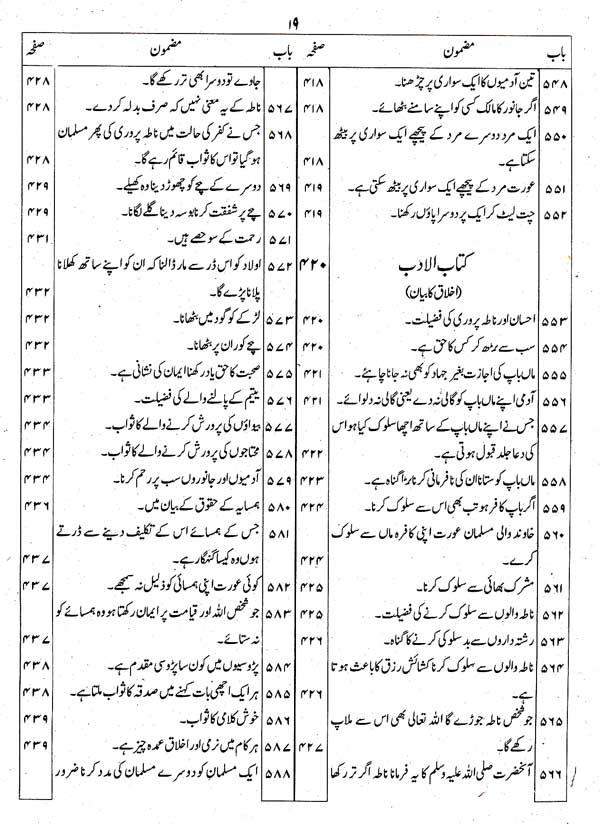 ۱۹
باب مضمون صفحہ
۵۴۸ تین آدمیوں کا ایک سواری پر چڑھنا۔ ۴۱۸
۵۴۹ اگر جانور کا مالک کسی کو اپنے سامنے بٹھائے۔ ۴۱۸
۵۵۰ ایک مرد دوسرے مرد کے پیچھے ایک سواری پر بیٹھ
سکتا ہے۔ ۴۱۸
۵۵۱ عورت مرد کے پیچھے ایک سواری پر بیٹھ سکتی ہے۔ ۴۱۹
۵۵۲ چت لیٹ کر ایک پر دوسرا پاؤں رکھنا۔ ۴۱۹
کتاب الادب ۴۲۰
(اخلاق کا بیان)
۵۵۳ احسان اور ناطہ پروری کی فضیلت۔ ۴۲۰
۵۵۴ سب سے بڑھ کر کس کا حق ہے۔ ۴۲۰
۵۵۵ ماں باپ کی اجازت بغیر جہاد کو بھی نہ جانا چاہئے۔ ۴۲۱
۵۵۶ آدمی اپنے ماں باپ کو گالی نہ دے یعنی گالی نہ دلوائے۔ ۴۲۱
۵۵۷ جس نے اپنے ماں باپ کے ساتھ اچھا سلوک کیا ہو اس
کی دعا جلد قبول ہوتی ہے۔ ۴۲۲
۵۵۸ ماں باپ کو ستانا ان کی نافرمانی کرنا بڑا گناہ ہے۔ ۴۲۳
۵۵۹ اگر باپ کافر ہو تب بھی اس سے سلوک کرنا۔ ۴۲۴
۵۶۰ خاوند والی مسلمان عورت اپنی کافرہ ماں سے سلوک
کرے۔ ۴۲۴
۵۶۱ مشرک بھائی سے سلوک کرنا۔ ۴۲۵
۵۶۲ ناطہ والوں سے سلوک کرنے کی فضیلت۔ ۴۲۵
۵۶۳ رشتہ داروں سے بد سلوکی کرنے کا گناہ۔ ۴۲۶
۵۶۴ ناطہ والوں سے سلوک کرنا کشائش رزق کا باعث ہوتا
ہے۔ ۴۲۶
۵۶۵ جو شخص ناطہ جوڑے گا اللہ تعالی بھی اس سے ملاپ
رکھے گا۔ ۴۲۷
۵۶۶ آنحضرت صلی اللہ علیہ وسلم کا یہ فرمانا ناطہ اگر تر رکھا
باب مضمون صفحہ
جاوے تو دوسرا بھی تر رکھے گا۔ ۴۲۸
۵۶۷ ناطہ کے یہ معنی نہیں کہ صرف بدلہ کر دے۔ ۴۲۸
۵۶۸ جس نے کفر کی حالت میں ناطہ پروری کی پھر مسلمان
ہو گیا تو اس کا ثواب قائم رہے گا۔ ۴۲۸
۵۶۹ دوسرے کے بچے کو چھوڑ دینا وہ کھیلے۔ ۴۲۹
۵۷۰ بچے پر شفقت کرنا بوسہ دینا گلے لگانا۔ ۴۲۹
۵۷۱ رحمت کے سو حصے ہیں۔ ۴۳۱
۵۷۲ اولاد کو اس ڈر سے مار ڈالنا کہ ان کو اپنے ساتھ کھلانا
پلانا پڑے گا۔ ۴۳۲
۵۷۳ لڑکے کو گود میں بٹھانا۔ ۴۳۲
۵۷۴ بچے کو ران پر بٹھانا۔ ۴۳۲
۵۷۵ صحبت کا حق یاد رکھنا ایمان کی نشانی ہے۔ ۴۳۳
۵۷۶ یتیم کے پالنے والے کی فضیلت۔ ۴۳۳
۵۷۷ بیواؤں کی پرورش کرنے والے کا ثواب۔ ۴۳۳
۵۷۸ محتاجوں کی پرورش کرنے والے کا ثواب۔ ۴۳۴
۵۷۹ آدمیوں اور جانوروں سب پر رحم کرنا۔ ۴۳۴
۵۸۰ ہمسایہ کے حقوق کے بیان میں۔ ۴۳۶
۵۸۱ جس کے ہمسائے اس کے تکلیف دینے سے ڈرتے
ہوں وہ کیسا گنہگار ہے۔ ۴۳۷
۵۸۲ کوئی عورت اپنی ہمسائی کو ذلیل نہ سمجھے۔ ۴۳۷
۵۸۳ جو شخص اللہ اور قیامت پر ایمان رکھتا ہو وہ ہمسائے کو
نہ ستائے۔ ۴۳۷
۵۸۴ پڑوسیوں میں کون سا پڑوسی مقدم ہے۔ ۴۳۸
۵۸۵ ہر ایک اچھی بات کہنے میں صدقہ کا ثواب ملتا ہے۔ ۴۳۸
۵۸۶ خوش کلامی کا ثواب۔ ۴۳۹
۵۸۷ ہر کام میں نرمی اور اخلاق عمدہ چیز ہے۔ ۴۳۹
۵۸۸ ایک مسلمان کو دوسرے مسلمان کی مدد کرنا ضرور